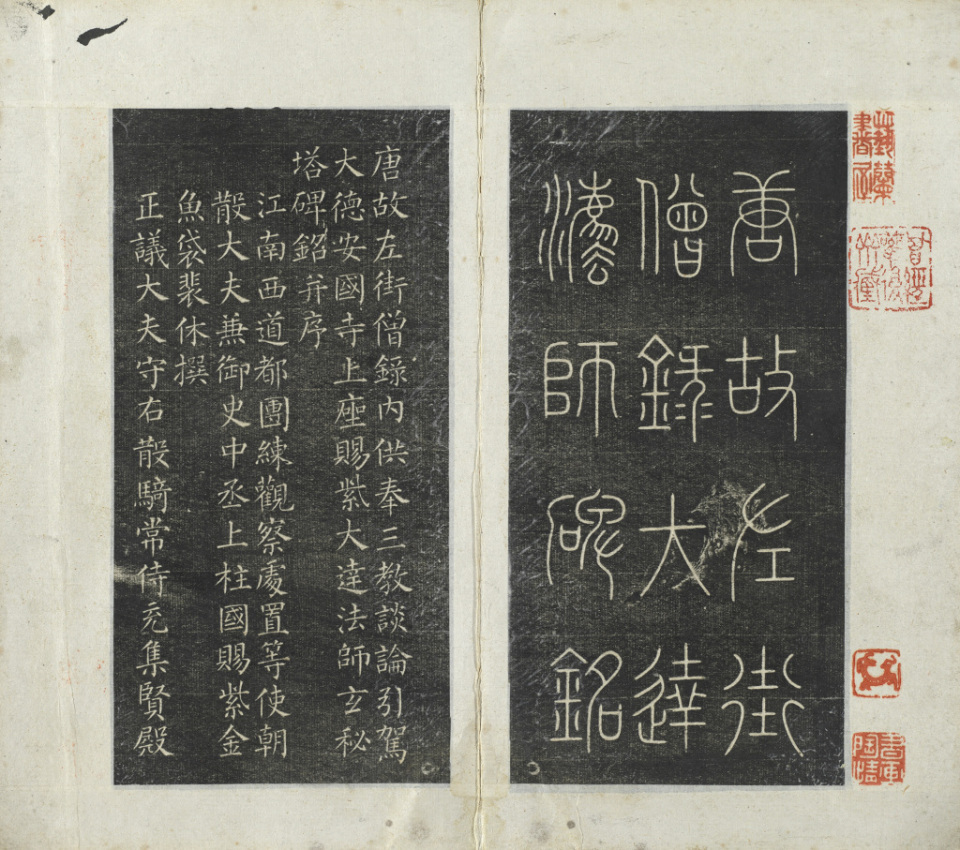 唐故左街
僧錄大達
法師碑銘
唐故左街僧錄內供奉三教談論引駕
大德安國寺上座賜紫大達法師玄秘
塔碑銘并序
江南西道都團練觀察處置等使朝
散大夫兼御史中丞上柱國賜紫金
魚袋裴休撰
正議大夫守右散騎常侍充集賢殿